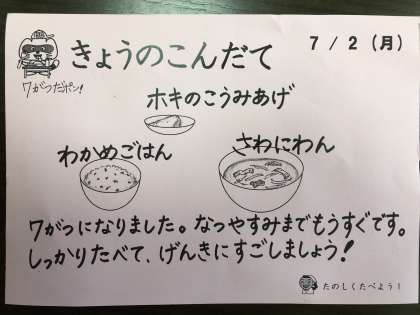 きょうのこんだて
7/2（月）
7がつだポン!
ホキのこうみあげ
わかめごはん
さわにわん
7がつになりました。なつやすみまでもうすぐです。
しっかりたべて、げんきにすごしましょう!
たのしくたべよう!